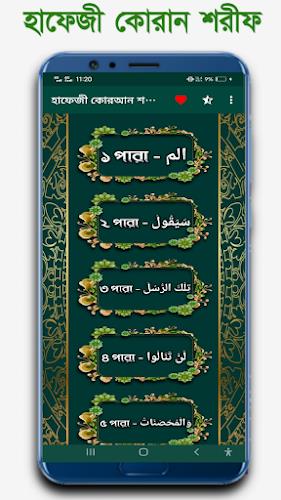 হাফেজী কোরান শরীফ
11:20 9%
হাফেজী কোরআন শ...
১ পারা - الم
২ পারা - سَيَقُولُ
৩ পারা - تِلْكَ الرُّسُل
৪ পারা - لَنْ تَنَالُوا
৫ পারা - وَالْمُحْصَنَاتُ